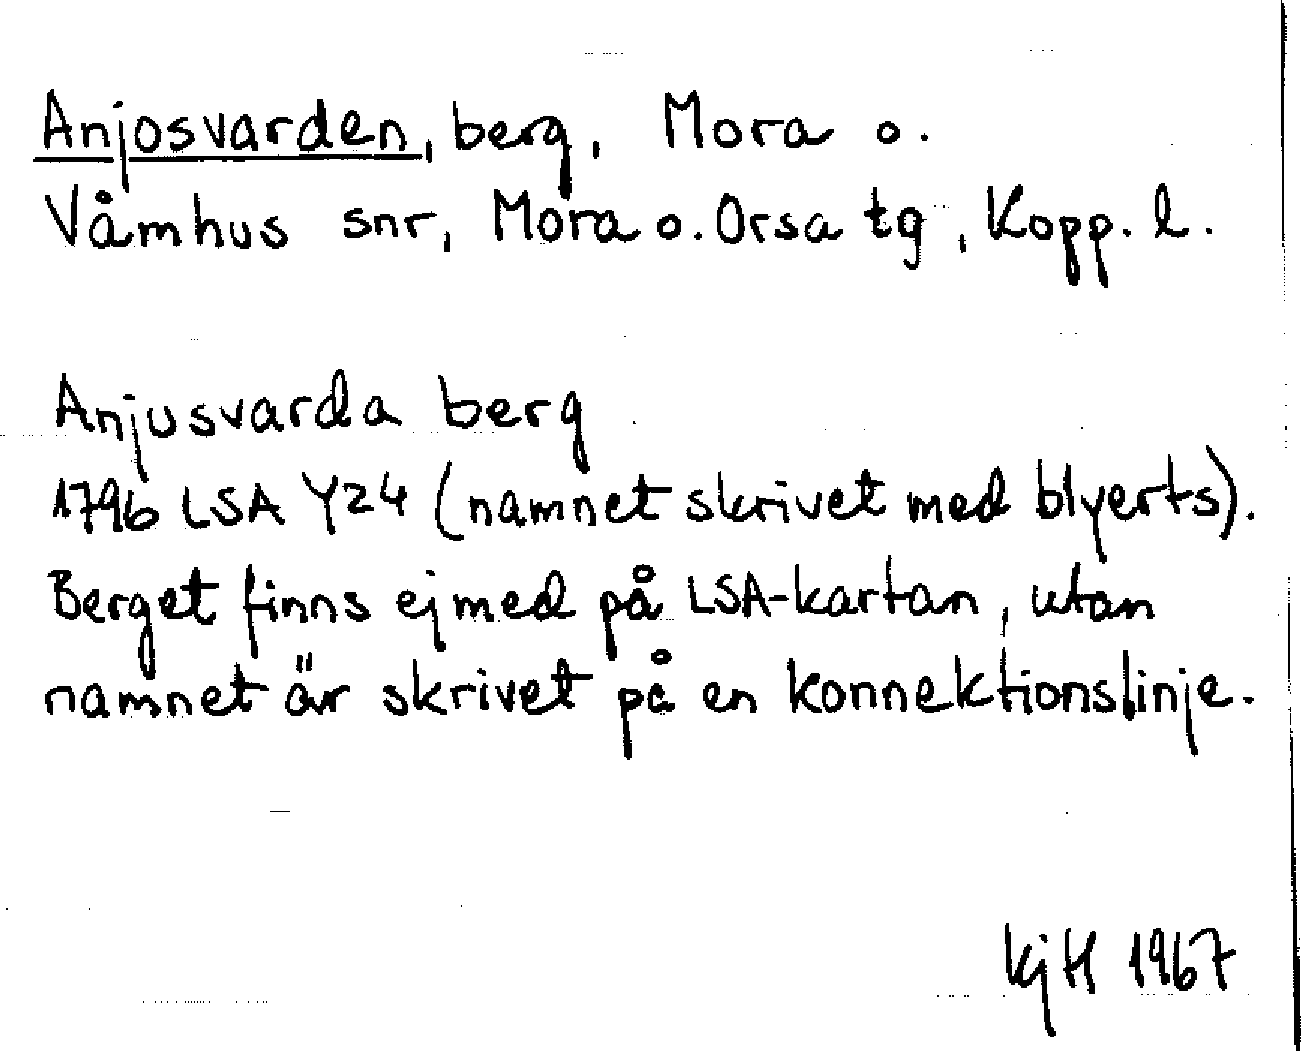 Anjosvarden, berg, Mora o.
Våmhus snr, Mora o. Orsa tg, Kopp. l.
Anjusvarda berg
1796 LSA Y24 (namnet skrivet med blyerts).
Berget finns ej med på LSA-kartan, utan
namnet är skrivet på en konnektionslinje.
KjH 1967